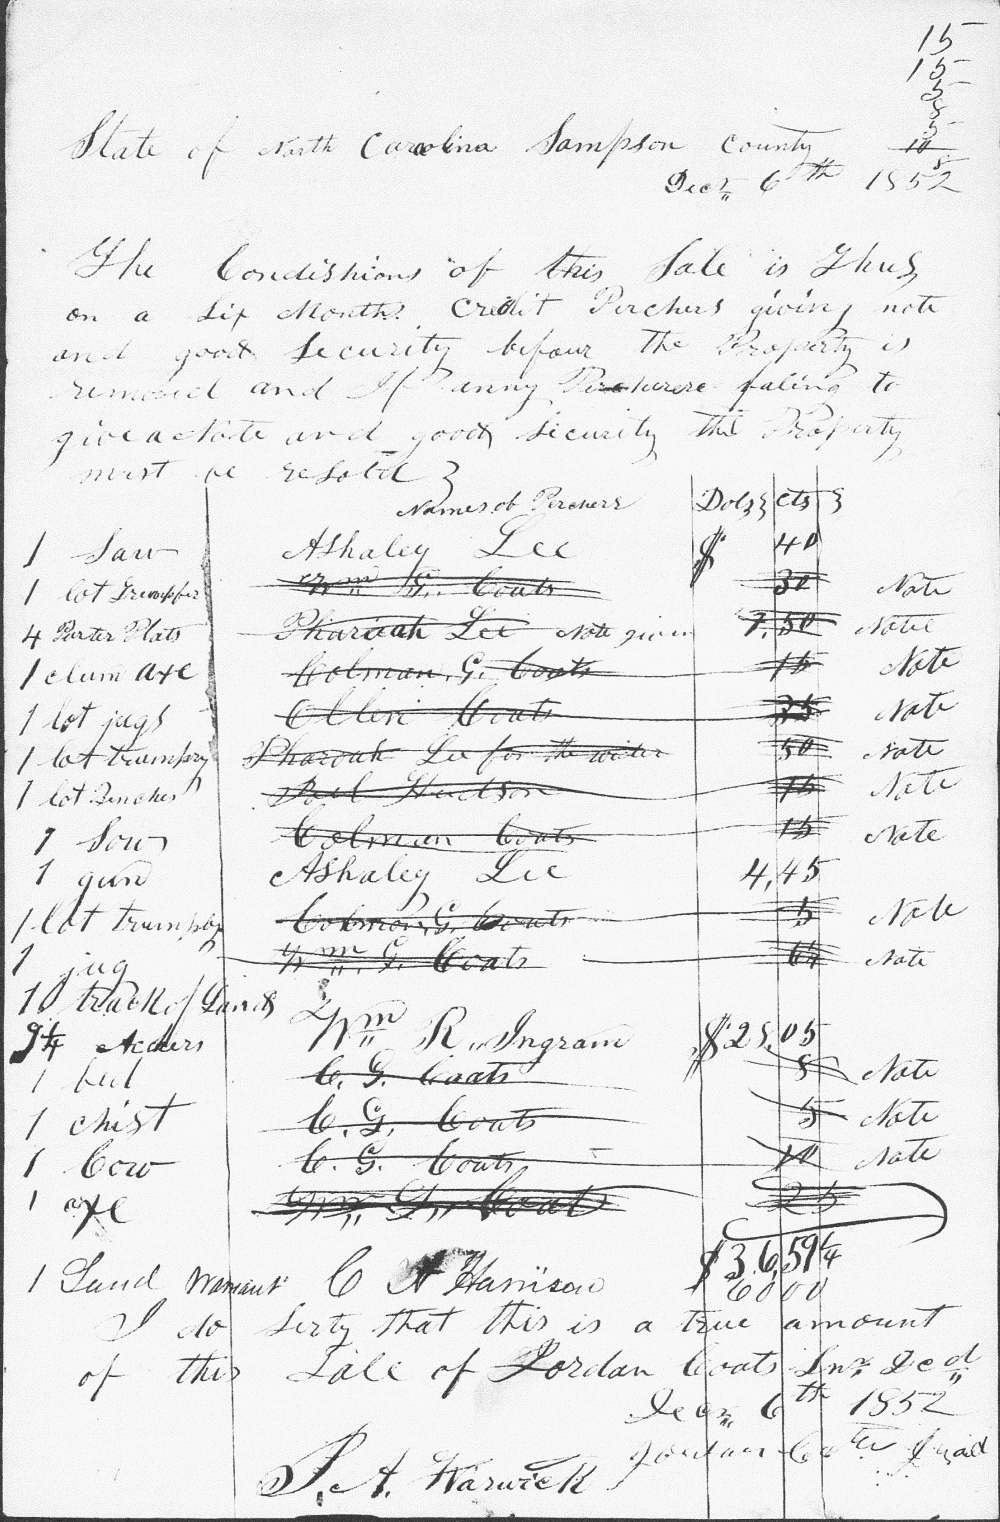 15
15
5
8
5
10
8
State of North Carolina Sampson County
Decr 6th 1852
The Condishions of this Sale is Thus,
on a Six Months Credit Perchers giving note
and good Security befour the Property is
removed and If anny Percherere faling to
give a Note and good Security the Property
must be resold }
Names of Perchers Dols} cts }
1 Saw Ashaley Lee $ 40
1 lot Trumpper Wm G. Coats 30 Note
4 Porter Plats Pharouh Lee Note given 7,50 Note
1 clum axe Colman, G. Coats 15 Note
1 lot jugs Ollen Coats 25 Note
1 lot trumpry Pharoah Lee for the wider 50 Note
1 lot Hudson 15 Note
1 Sow Colman Coats 15 Note
1 gun Ashaley Lee 4,45
1 lot trumpry Colmon, G. Coats 5 Note
1 jug Wm. G. Coats 6¼ Note
1 track of Lands
9¼ Ackers Wm R,, Ingram $ 25,05
1 bed C. G. Coats 8 Note
1 chist C. G. Coats 5 Note
1 Cow C. G. Coats 10 Note
1 axe Wm,, G,, Coat 25
$36,59¼
1 Land Warrant C A Harrison 6000
I do Serty that this is a true amount
of this Sale of Jordan Coats Snr Decd
Decr 6th 1852
Jordan Coats
J. A. Warwick